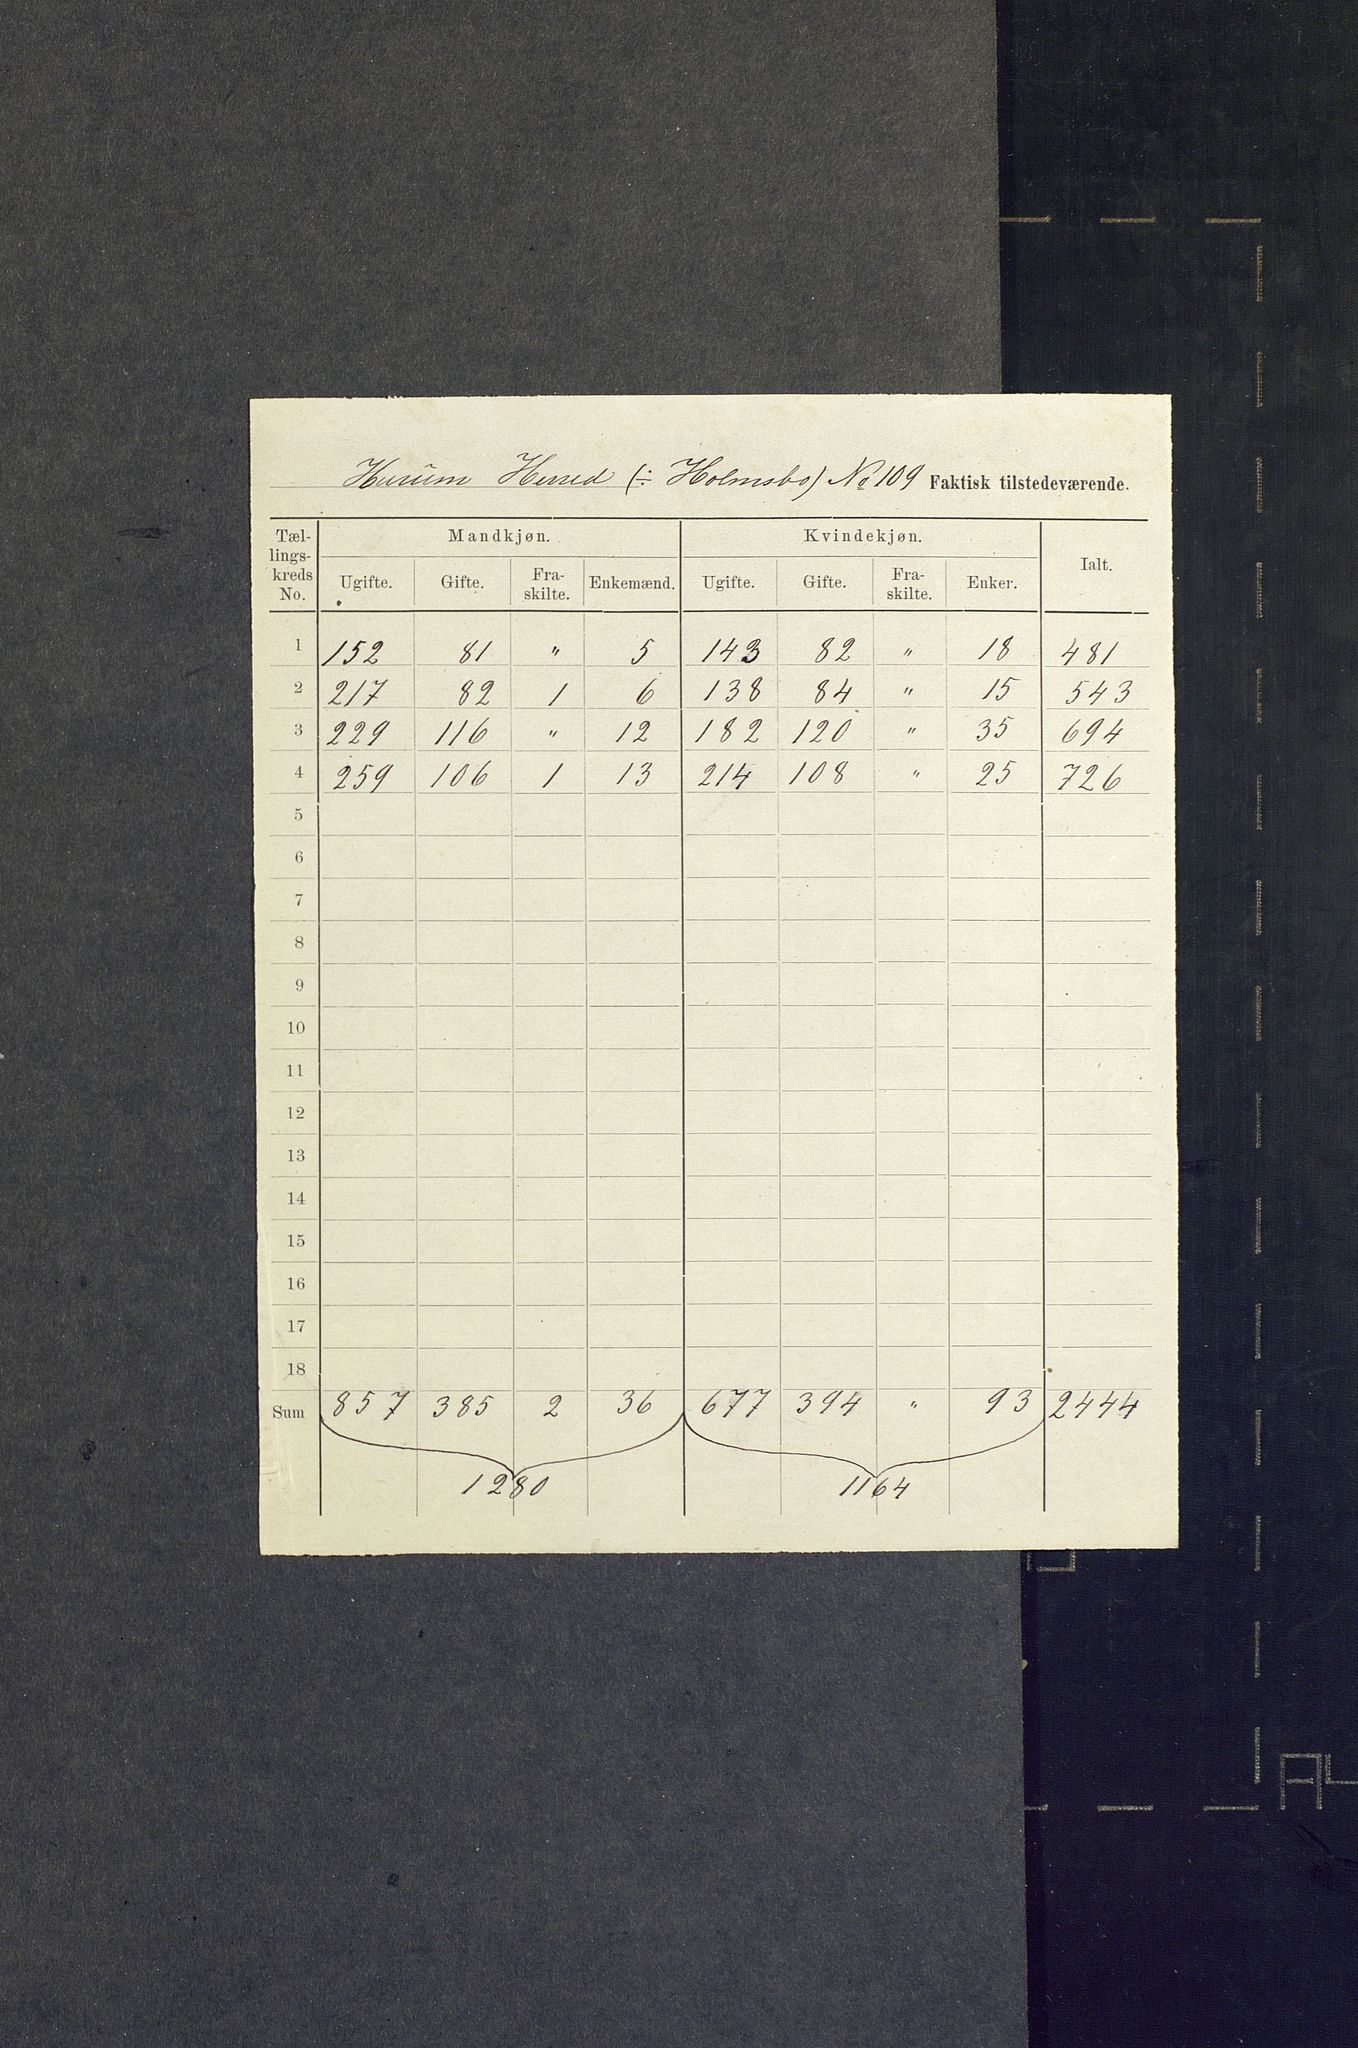 Hurum Herred (÷ Holmsbo) No 109 Faktisk tilstedeværende.
Tæl- lings- kreds No. Mandkjøn. Kvindekjøn. Ialt.
Ugifte. Gifte. Fra- skilte. Enkemænd. Ugifte. Gifte. Fra- skilte. Enker.
1 152 81 " 5 143 82 " 18 481
2 217 82 1 6 138 84 " 15 543
3 229 116 " 12 182 120 " 35 694
4 259 106 1 13 214 108 " 25 726
5
6
7
8
9
10
11
12
13
14
15
16
17
18
Sum 857 385 2 36 677 394 " 93 2444
1280 1164
A4